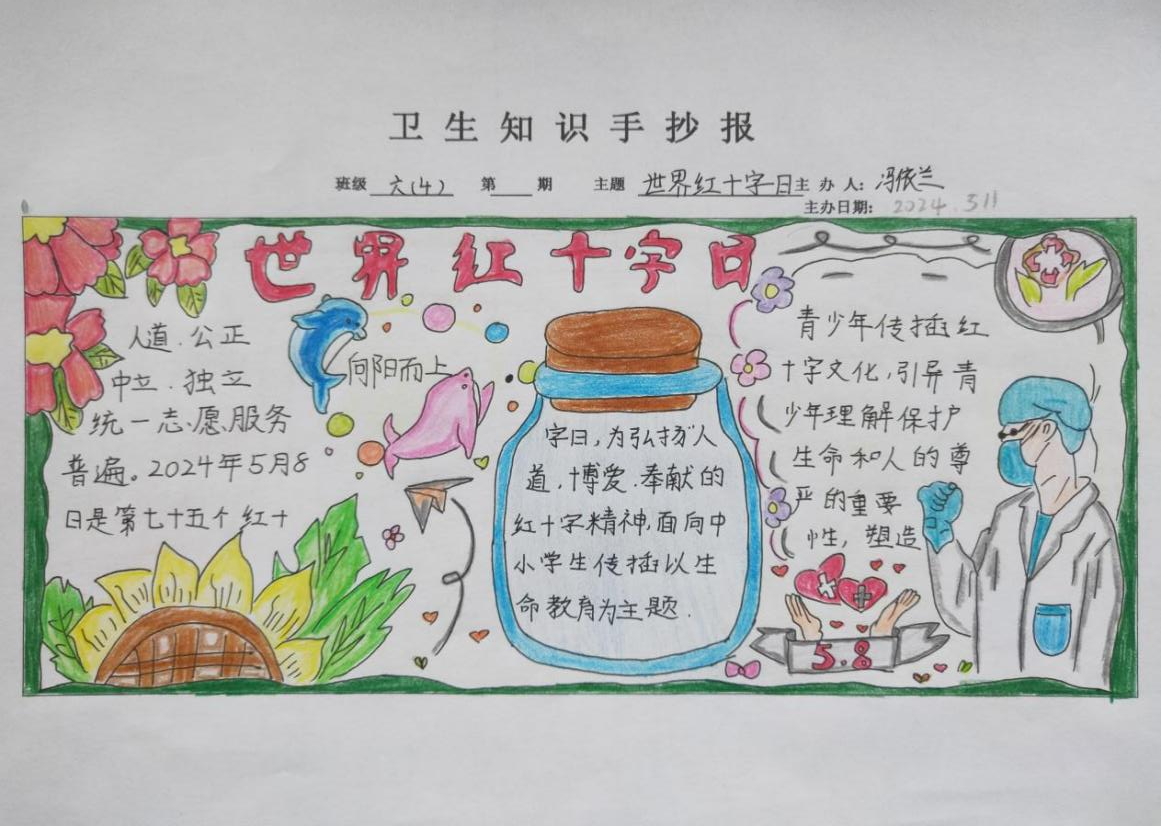 卫生知识手抄报
班级 六(4) 第 期 主题 世界红十字日 主办人: 冯依兰
主办日期: 2024.5.11
世界红十字日
人道.公正
中立.独立
统一志愿服务
普遍。2024年5月8
日是第七十五个红十
向阳而上
字日,为弘扬人
道.博爱.奉献的
红十字精神,面向中
小学生传插以生
命教育为主题.
青少年传插红
十字文化,引导青
少年理解保护
生命和人的尊
严的重要
性,塑造
5.8